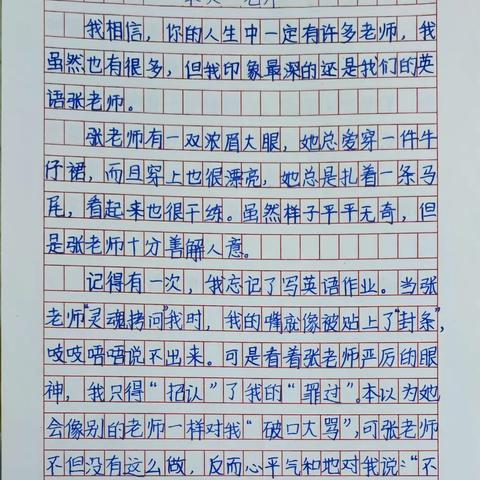 我相信，你的人生中一定有许多老师，我
虽然也有很多，但我印象最深的还是我们的英
语张老师。
张老师有一双浓眉大眼，她总爱穿一件牛
仔裙，而且穿上也很漂亮，她总是扎着一条马
尾，看起来也很干练。虽然样子平平无奇，但
是张老师十分善解人意。
记得有一次，我忘记了写英语作业。当张
老师“灵魂拷问”我时，我的嘴就像被贴上了“封条”，
吱吱唔唔说不出来。可是看着张老师严厉的眼
神，我只得“招认”了我的“罪过”。本以为她
会像别的老师一样对我“破口大骂”，可张老师
不但没有这么做，反而心平气和地对我说：“不